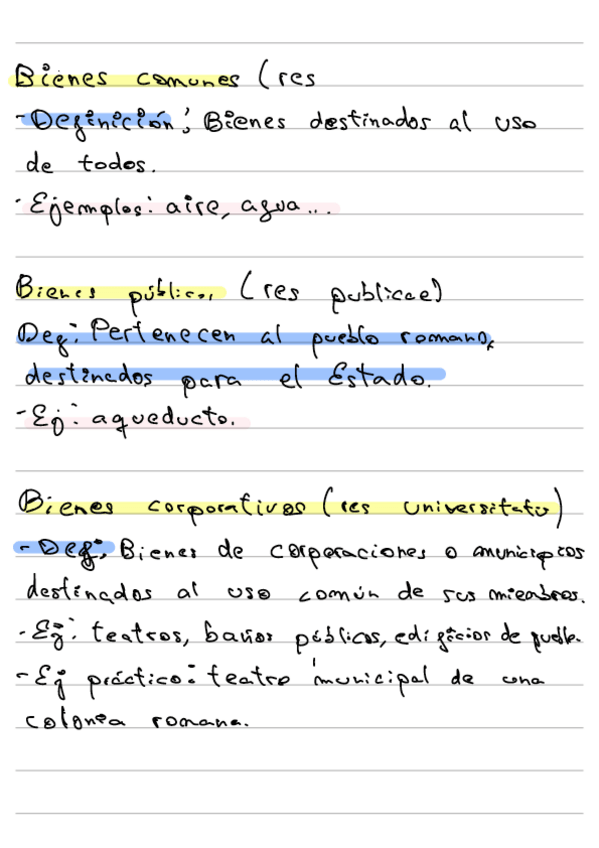 Bienes comunes (res
-Definición: Bienes destinados al uso
de todos.
-Ejemplos: aire, agua...
Bienes públicos (res publicae)
Def: Pertenecen al pueblo romano,
destinados para el Estado.
-Ej: aqueducto.
Bienes corporativos (res universitatis)
-Def: Bienes de corporaciones o municipios
destinados al uso común de sus miembros.
-Ej: teatros, baños públicos, edificios de pueblo.
-Ej práctico: teatro municipal de una
colonia romana.